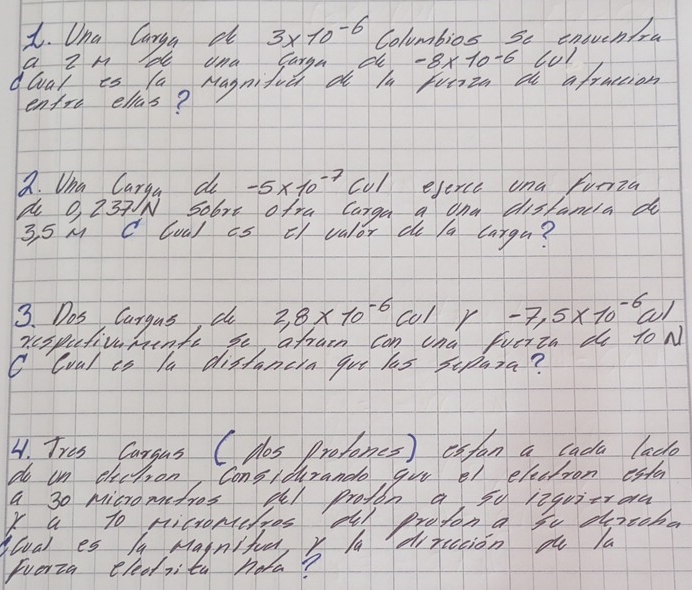 1. Una Carga de 3x10⁻⁶ Columbios se encuentra
a 2 M de una Carga de -8x10-6 Cul
¿Cual es la Magnitud de la fuerza de atraccion
entre ellas?
2. Una Carga de -5x10⁻⁷ Cul eferce una fuerza
de 0,237N Sobre otra Carga a una distancia de
3,5 M ¿ Cual es el valor de la carga?
3. Dos Cargas de 2,8x10⁻⁶ cul y -7,5x10⁻⁶ cul
respectivamente se atraen con una fuerza de 10 N
¿ Cual es la distancia que las separa?
4. Tres Cargas (Dos protones) estan a cada lado
de un electron, Considerando que el electron esta
a 30 Micrometros del protón a su izquierda
y a 10 Micrometros del proton a su derecha
¿Cual es la Magnitud y la dirección de la
fuerza electrita neta?